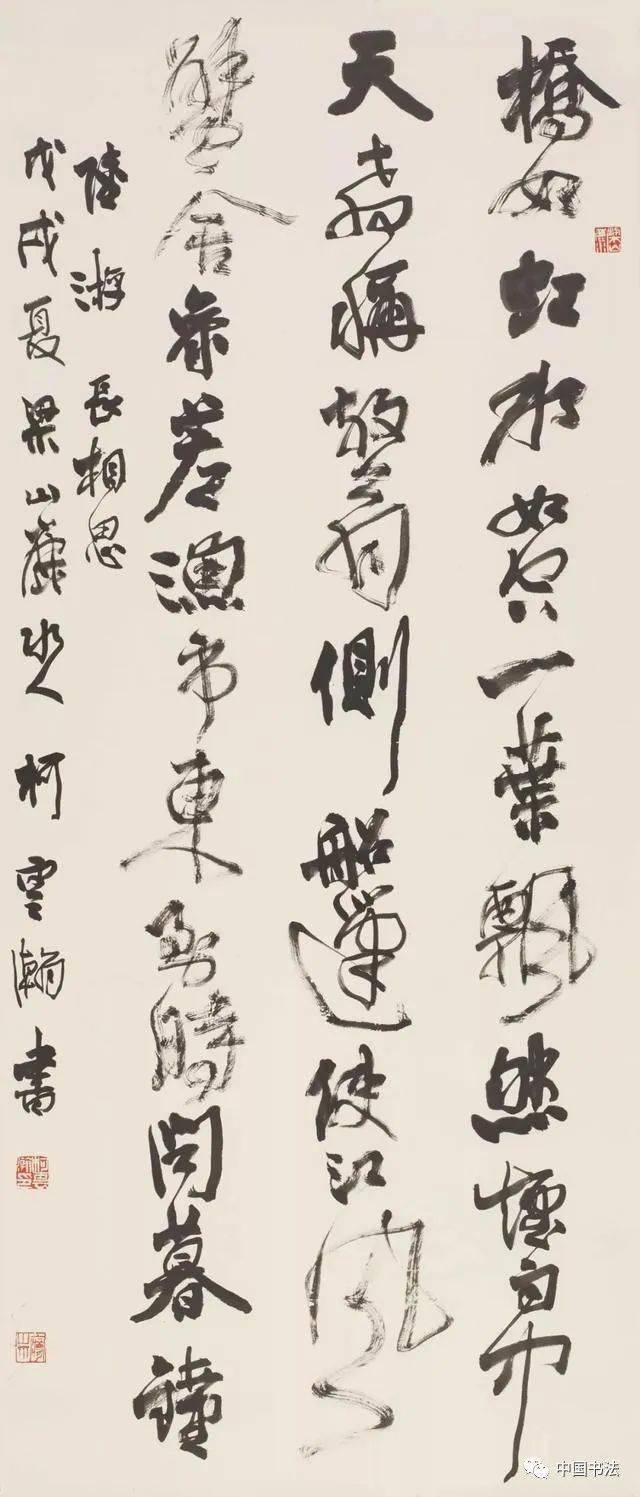 橋如虹水如空一葉飄然煙雨中
天教稱放翁側船篷使江風
蟹舍參差漁市東到時聞暮鐘
陸游 長相思
戊戌夏梁山 柯雲瀚書
中国书法